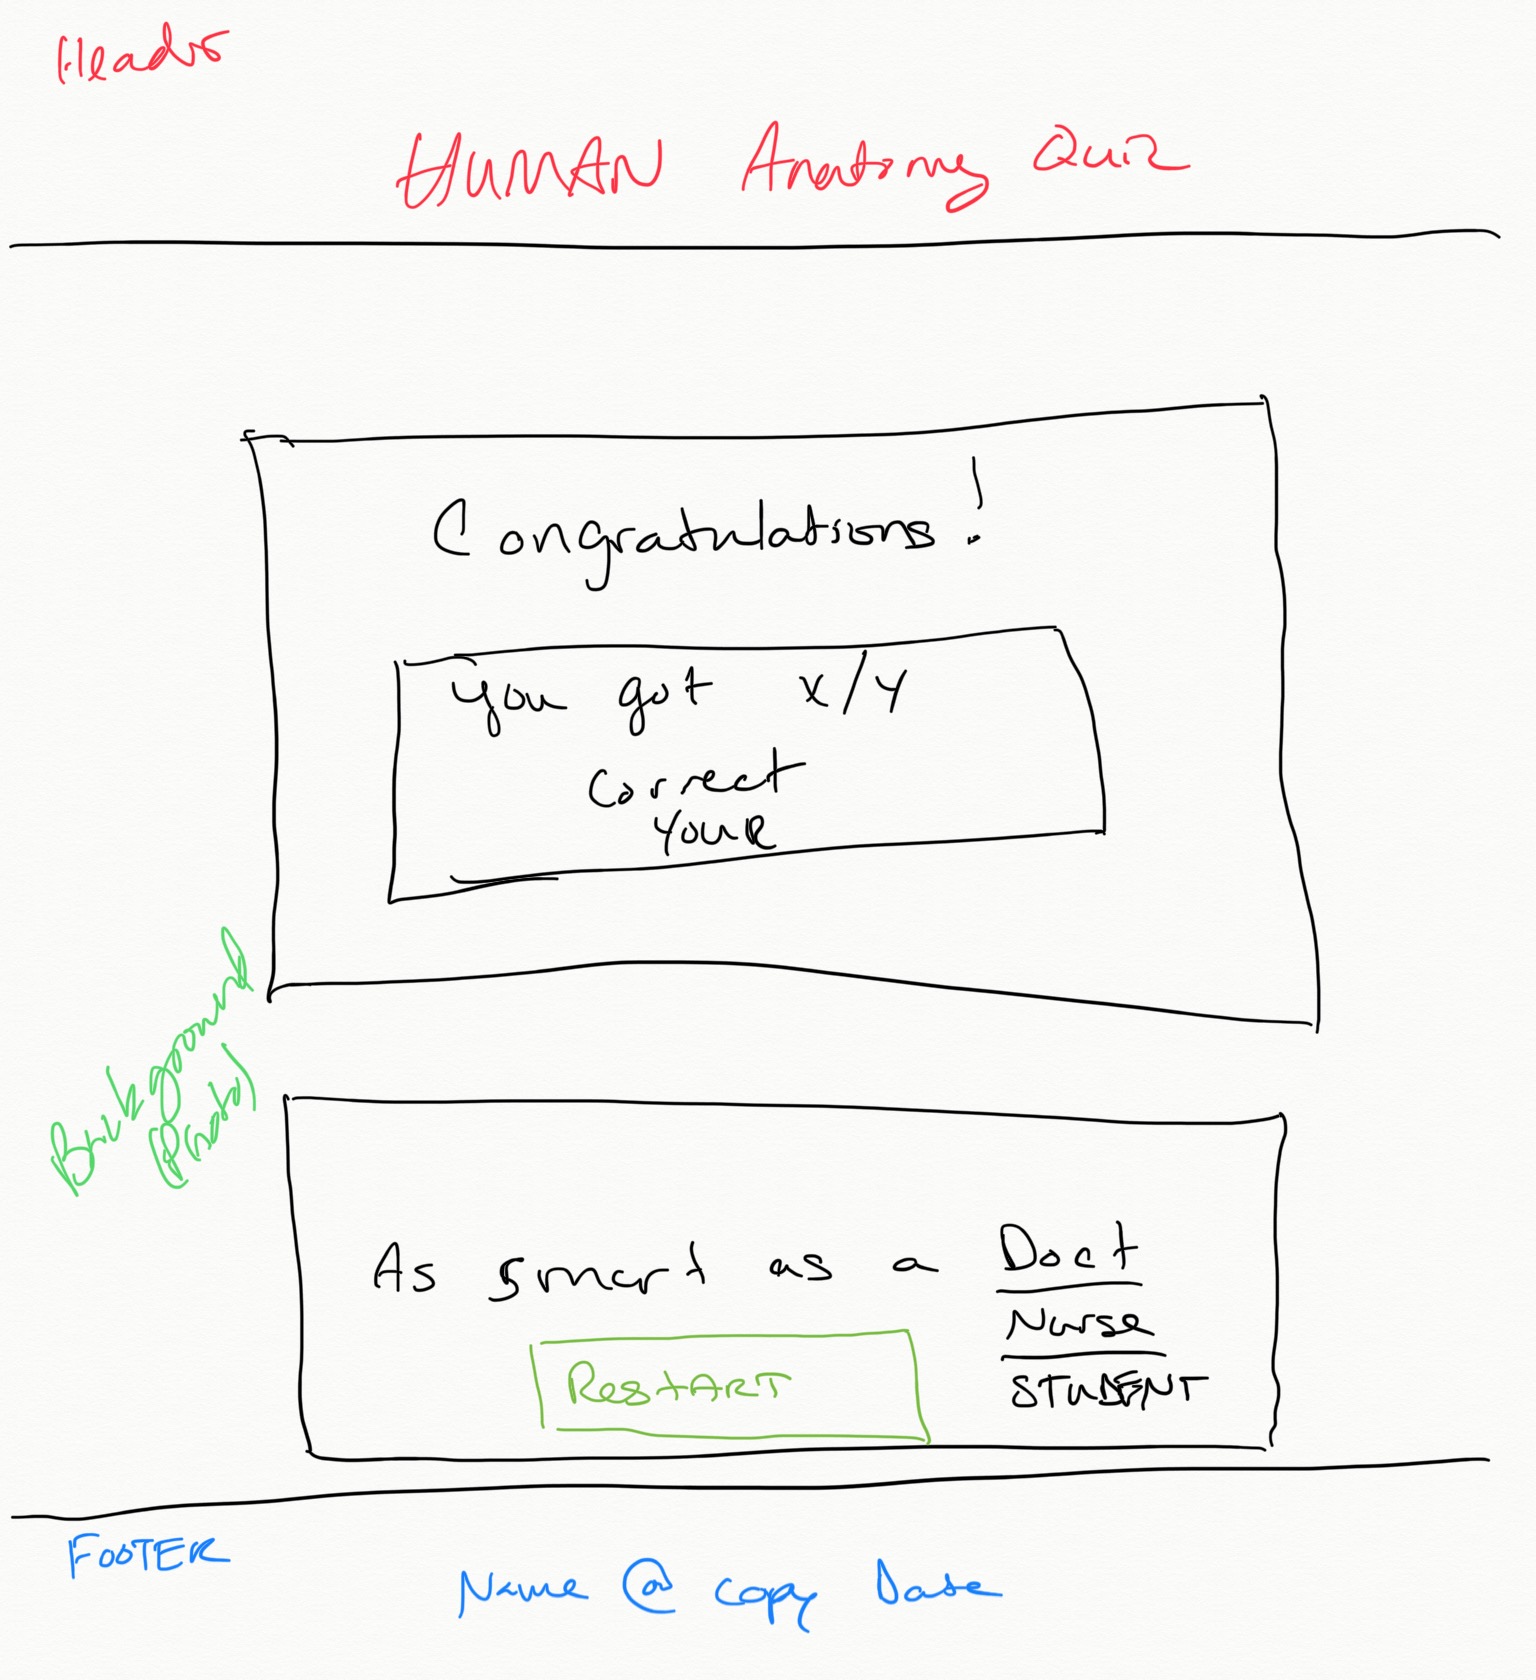 Header
HUMAN Anatomy Quiz
Congratulations!
You got x/y
Correct
Your
Background
(Photo)
As smart as a Doct
Nurse
STUDENT
RestART
FOOTER
Name @ copy Date